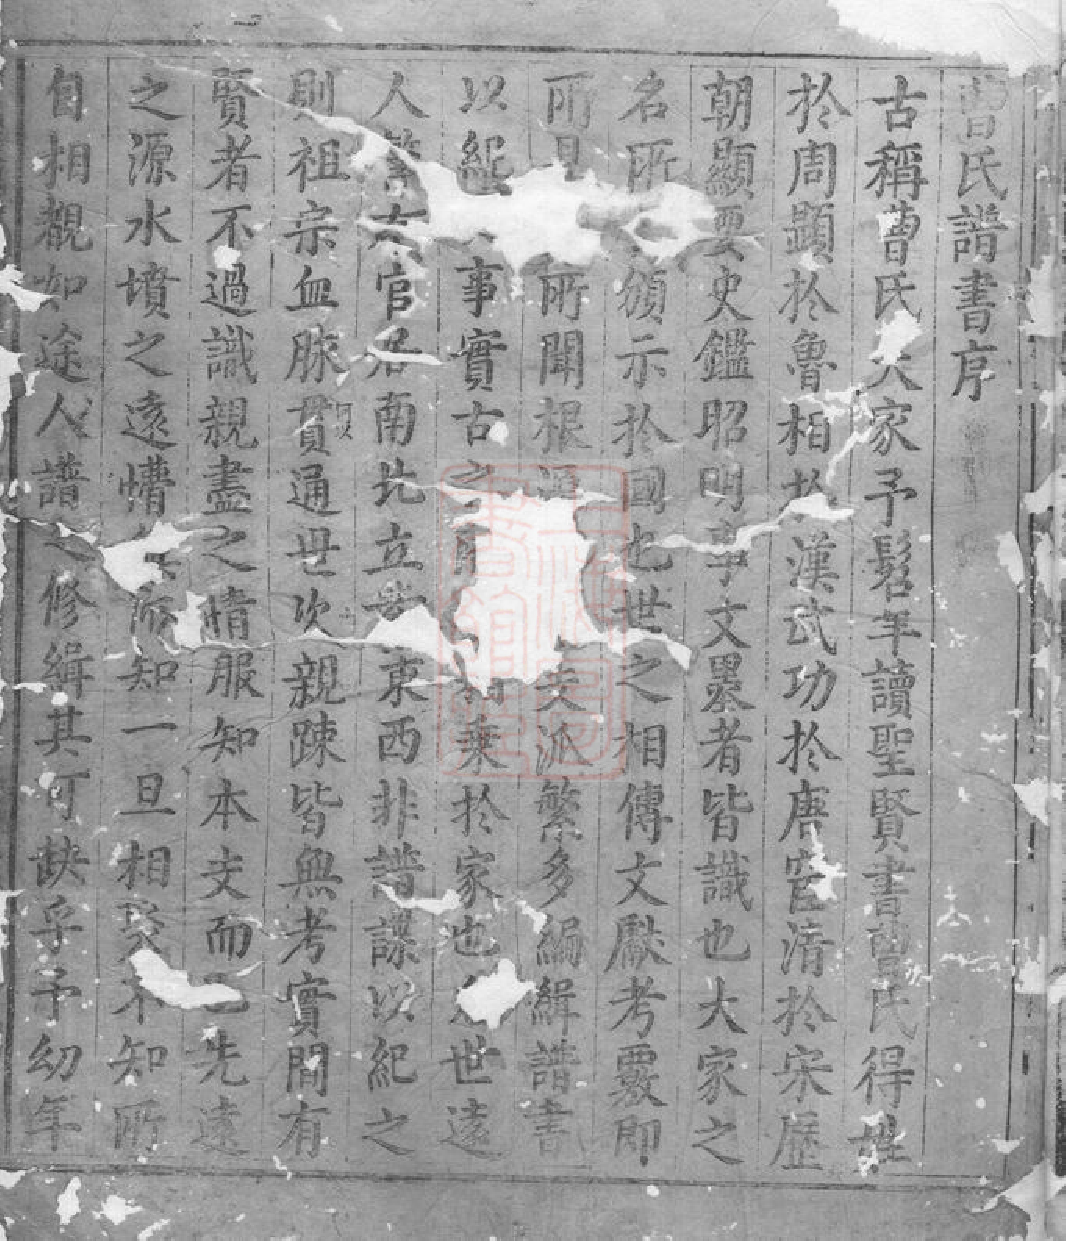 曹氏譜書序
古稱曹氏大家予髫年讀聖賢書曹氏得姓
扵周顯扵魯相扵漢武功扵唐官清扵宋歷
朝顯要史鑑昭明事文墨者皆識也大家之
名所頒示扵國也世之相傳文獻考覈即
所見所聞根源支派繁多編緝譜書
以紀事實古之乗扵家也世遠
人繁官居南北立東西非譜諜以紀之
則祖宗血脉貫通世次親踈皆無考實間有
賢者不過識親盡之情服知本支而已先遠
之源水墳之遠懵而知一旦相不知所
自相覩如途人譜之修緝其可缺乎予幼年